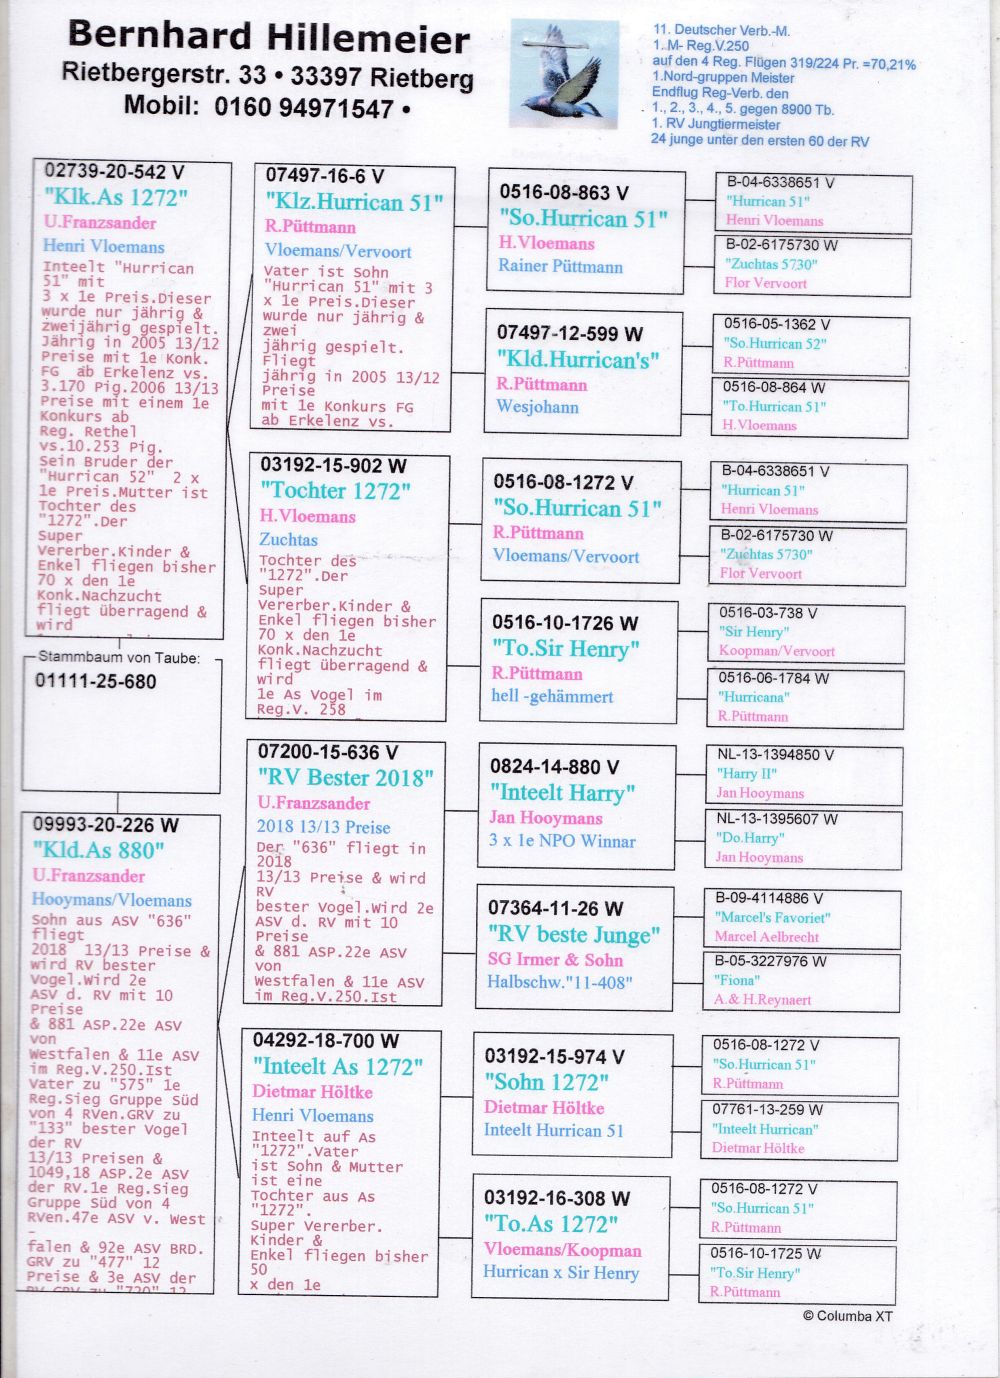 Bernhard Hillemeier
Rietbergerstr. 33 • 33397 Rietberg
Mobil: 0160 94971547 •
11. Deutscher Verb.-M.
1. M- Reg.V.250
auf den 4 Reg. Flügen 319/224 Pr. =70,21%
1.Nord-gruppen Meister
Endflug Reg-Verb. den
1., 2., 3., 4., 5. gegen 8900 Tb.
1. RV Jungtiermeister
24 junge unter den ersten 60 der RV
02739-20-542 V
"Klk.As 1272"
U.Franzsander
Henri Vloemans
Inteelt "Hurrican
51" mit
3 x 1e Preis.Dieser
wurde nur jährig &
zweijährig gespielt.
Jährig in 2005 13/12
Preise mit 1e Konk.
FG ab Erkelenz vs.
3.170 Pig.2006 13/13
Preise mit einem 1e
Konkurs ab
Reg. Rethel
vs.10.253 Pig.
Sein Bruder der
"Hurrican 52" 2 x
1e Preis.Mutter ist
Tochter des
"1272".Der
Super
Vererber.Kinder &
Enkel fliegen bisher
70 x den 1e
Konk.Nachzucht
fliegt überragend &
wird
Stammbaum von Taube:
01111-25-680
09993-20-226 W
"Kld.As 880"
U.Franzsander
Hooymans/Vloemans
Sohn aus ASV "636"
fliegt
2018 13/13 Preise &
wird RV bester
Vogel.Wird 2e
ASV d. RV mit 10
Preise
& 881 ASP.22e ASV
von
Westfalen & 11e ASV
im Reg.V.250.Ist
Vater zu "575" 1e
Reg.Sieg Gruppe Süd
von 4 RVen.GRV zu
"133" bester Vogel
der RV
13/13 Preisen &
1049,18 ASP.2e ASV
der RV.1e Reg.Sieg
Gruppe Süd von 4
RVen.47e ASV v. West
-
falen & 92e ASV BRD.
GRV zu "477" 12
Preise & 3e ASV der
RV.GRV zu "720" 12
07497-16-6 V
"Klz.Hurrican 51"
R.Püttmann
Vloemans/Vervoort
Vater ist Sohn
"Hurrican 51" mit 3
x 1e Preis.Dieser
wurde nur jährig &
zwei
jährig gespielt.
Fliegt
jährig in 2005 13/12
Preise
mit 1e Konkurs FG
ab Erkelenz vs.
03192-15-902 W
"Tochter 1272"
H.Vloemans
Zuchtas
Tochter des
"1272".Der
Super
Vererber.Kinder &
Enkel fliegen bisher
70 x den 1e
Konk.Nachzucht
fliegt überragend &
wird
1e As Vogel im
Reg.V. 258
07200-15-636 V
"RV Bester 2018"
U.Franzsander
2018 13/13 Preise
Der "636" fliegt in
2018
13/13 Preise & wird
RV
bester Vogel.Wird 2e
ASV d. RV mit 10
Preise
& 881 ASP.22e ASV
von
Westfalen & 11e ASV
im Reg.V.250.Ist
04292-18-700 W
"Inteelt As 1272"
Dietmar Höltke
Henri Vloemans
Inteelt auf As
"1272".Vater
ist Sohn & Mutter
ist eine
Tochter aus As
"1272".
Super Vererber.
Kinder &
Enkel fliegen bisher
50
x den 1e
0516-08-863 V
"So.Hurrican 51"
H.Vloemans
Rainer Püttmann
07497-12-599 W
"Kld.Hurrican's"
R.Püttmann
Wesjohann
0516-08-1272 V
"So.Hurrican 51"
R.Püttmann
Vloemans/Vervoort
0516-10-1726 W
"To.Sir Henry"
R.Püttmann
hell -gehämmert
0824-14-880 V
"Inteelt Harry"
Jan Hooymans
3 x 1e NPO Winnar
07364-11-26 W
"RV beste Junge"
SG Irmer & Sohn
Halbschw."11-408"
03192-15-974 V
"Sohn 1272"
Dietmar Höltke
Inteelt Hurrican 51
03192-16-308 W
"To.As 1272"
Vloemans/Koopman
Hurrican x Sir Henry
B-04-6338651 V
"Hurrican 51"
Henri Vloemans
B-02-6175730 W
"Zuchtas 5730"
Flor Vervoort
0516-05-1362 V
"So.Hurrican 52"
R.Püttmann
0516-08-864 W
"To.Hurrican 51"
H.Vloemans
B-04-6338651 V
"Hurrican 51"
Henri Vloemans
B-02-6175730 W
"Zuchtas 5730"
Flor Vervoort
0516-03-738 V
"Sir Henry"
Koopman/Vervoort
0516-06-1784 W
"Hurricana"
R.Püttmann
NL-13-1394850 V
"Harry II"
Jan Hooymans
NL-13-1395607 W
"Do.Harry"
Jan Hooymans
B-09-4114886 V
"Marcel's Favoriet"
Marcel Aelbrecht
B-05-3227976 W
"Fiona"
A.& H.Reynaert
0516-08-1272 V
"So.Hurrican 51"
R.Püttmann
07761-13-259 W
"Inteelt Hurrican"
Dietmar Höltke
0516-08-1272 V
"So.Hurrican 51"
R.Püttmann
0516-10-1725 W
"To.Sir Henry"
R.Püttmann
© Columba XT